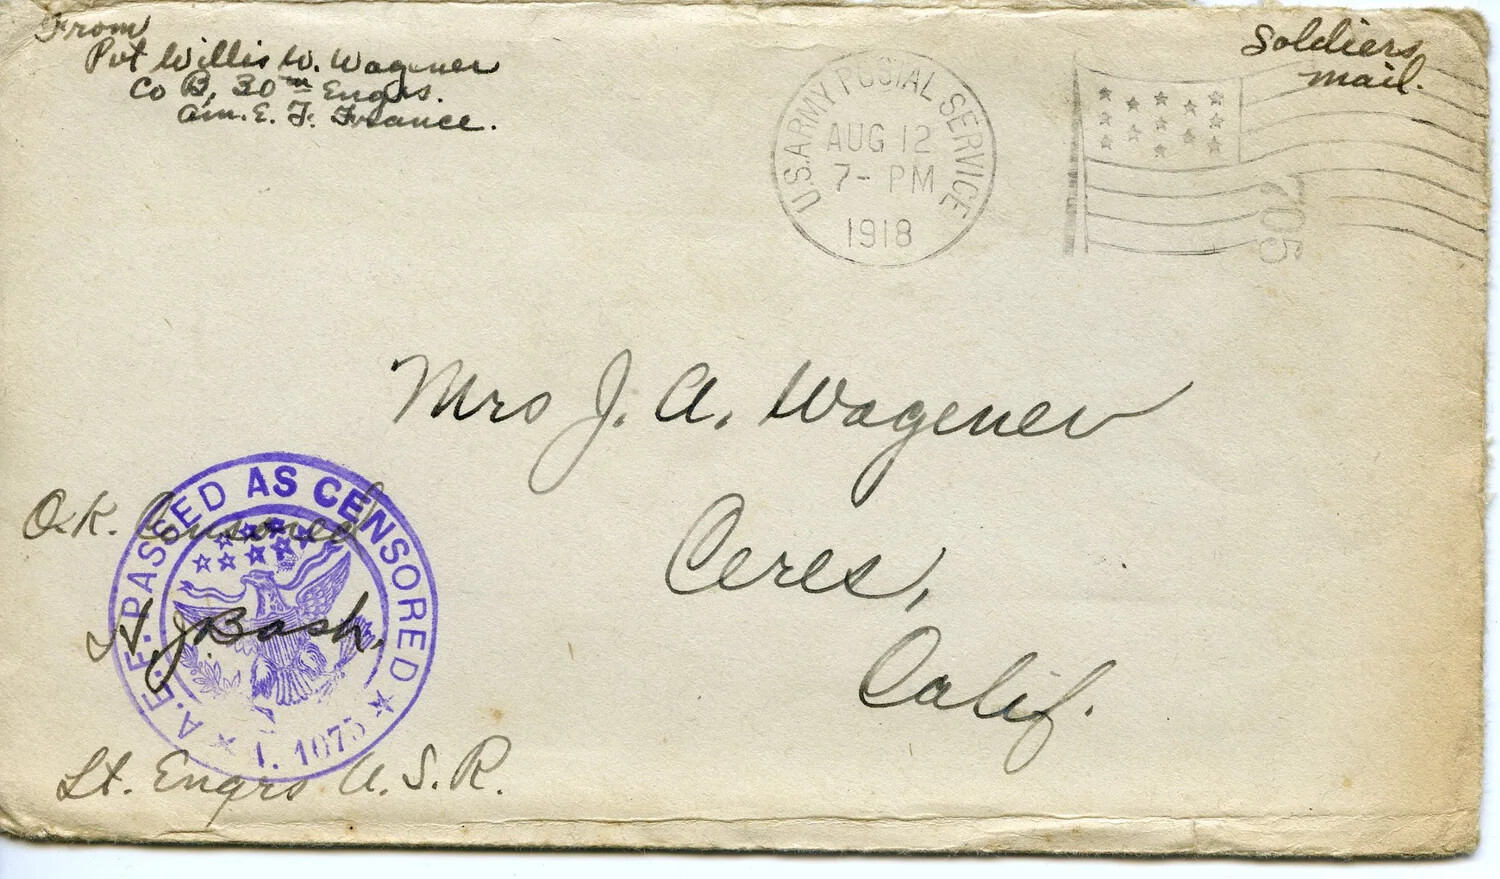 From
Pvt Willis W. Wagener
Co B, 30th Engrs.
Am. E. F. France.
Soldiers
mail.
U.S. ARMY POSTAL SERVICE
AUG 12
7- PM
1918
702
Mrs J. A. Wagener
Ceres,
Calif.
A.E.F. PASSED AS CENSORED
1. 1075
O.K. Censored
H. J. Bash.
Lt. Engrs U.S.R.